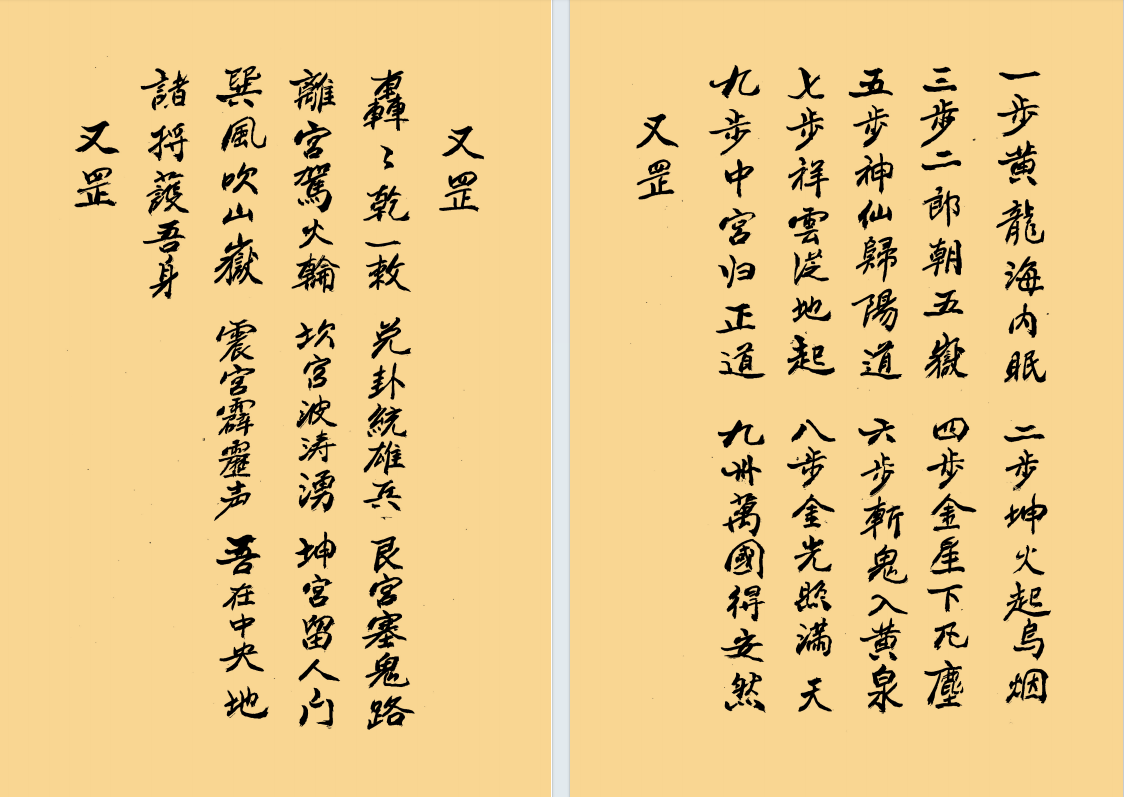 一步黄龍海内眠　二步坤火起烏烟
三步二郎朝五嶽　四步金星下凡塵
五步神仙歸陽道　六步斬鬼入黄泉
七步祥雲從地起　八步金光照满天
九步中宮归正道　九州萬國得安然
又罡
又罡
轟〻乾一敕　兑卦統雄兵　艮宮塞鬼路
離宮駕火輪　坎宮波涛湧　坤宮留人門
巽風吹山嶽　震宮霹靂声　吾在中央地
諸将護吾身
又罡